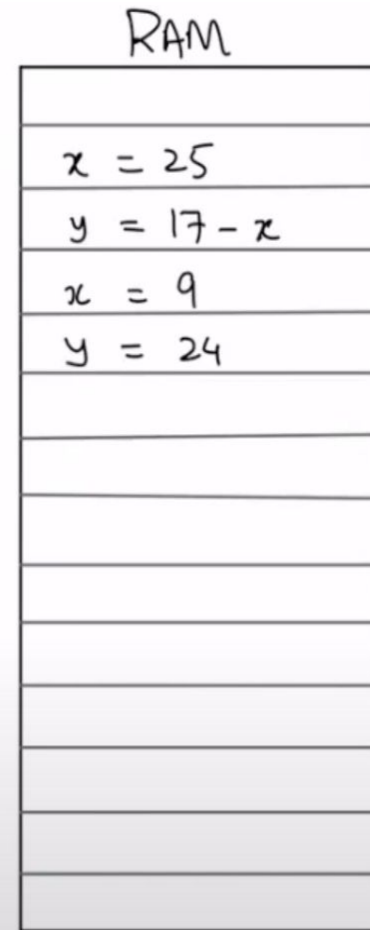 RAM
x = 25
y = 17 - x
x = 9
y = 24